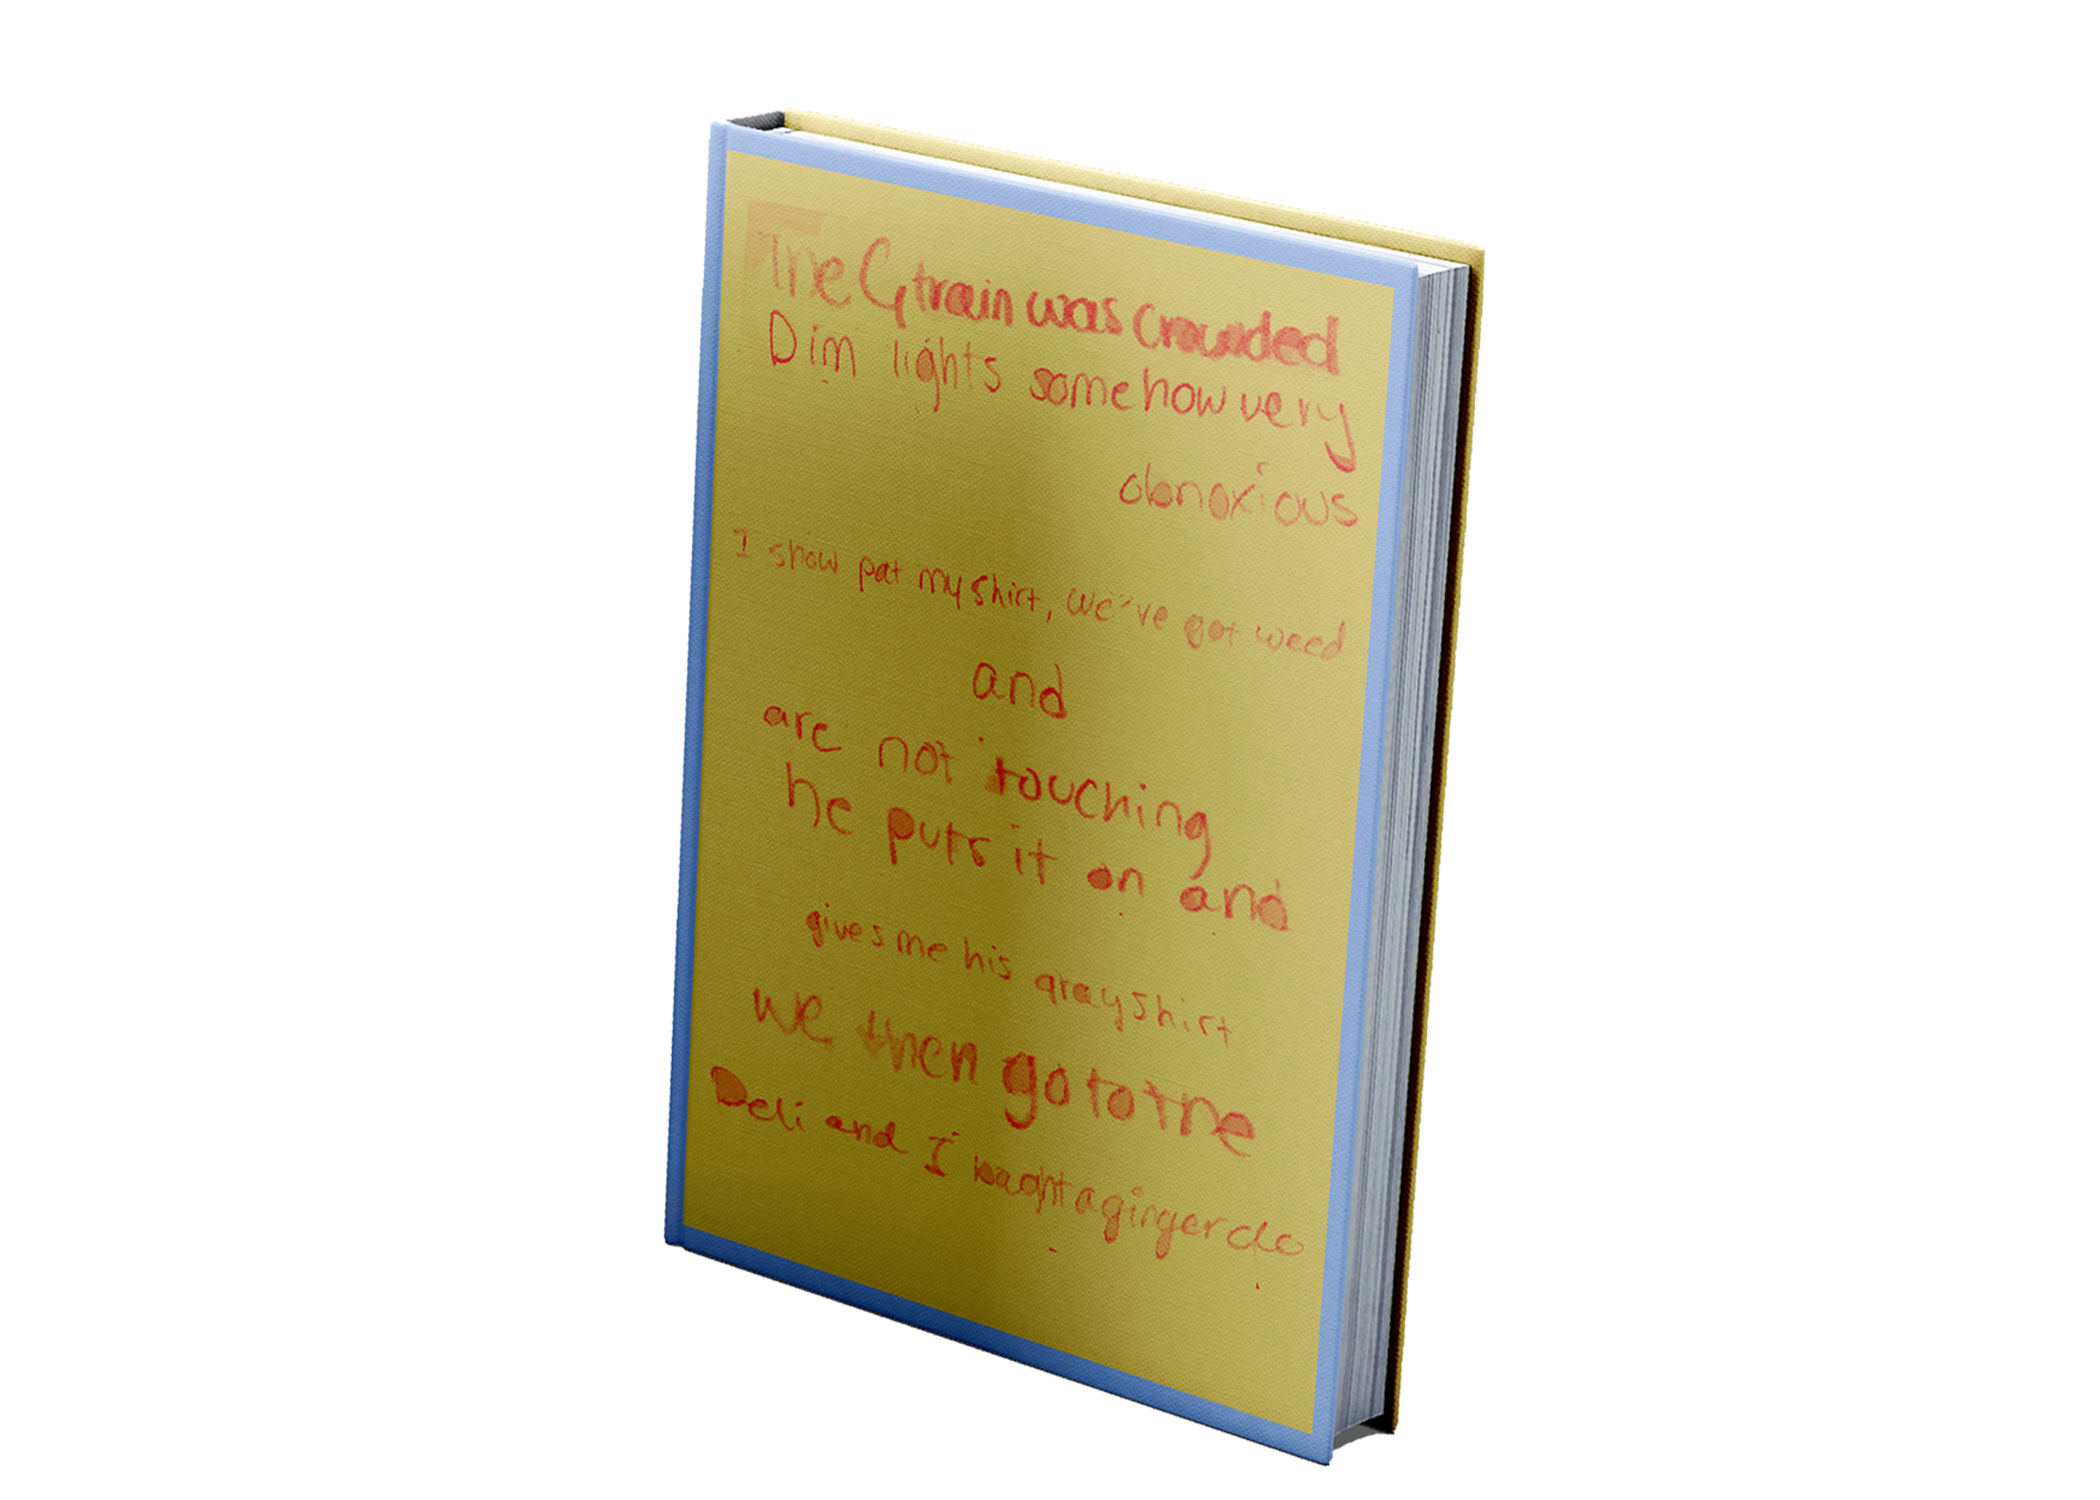 The G train was crowded
Dim lights somehow very
obnoxious
I show pat my shirt, we've got weed
and
are not touching
he puts it on and
gives me his gray shirt
we then go to the
Deli and I bought a ginger ale